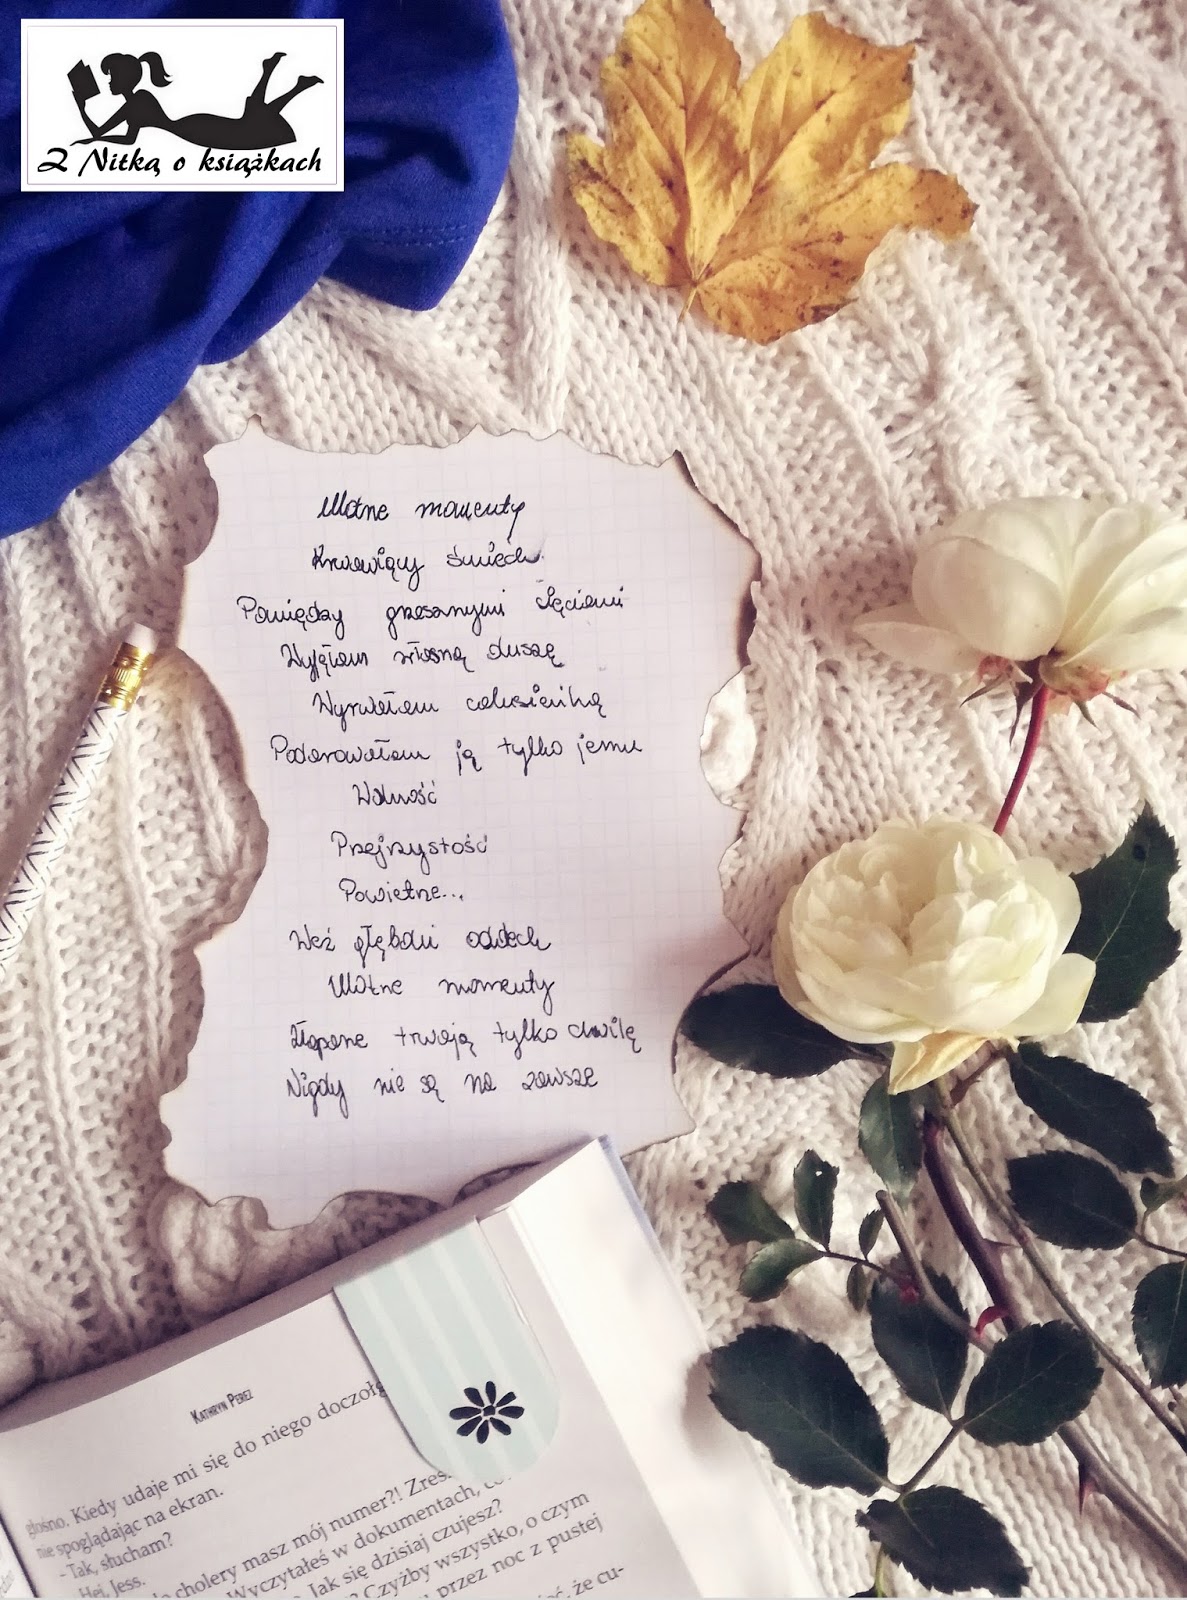 Z Nitką o książkach
Ulotne momenty
Krwawiący śmiech
Pomiędzy grzesznymi
Wyjęłam własną duszę
Wyrwałam calusieńką
Podarowałam ją tylko jemu
Wolność
Przejrzystość
Powietrze...
Weź głęboki oddech
Ulotne momenty
Złapane trwają tylko chwilę
Nigdy nie są na zawsze
KATHRYN PEREZ
głośno. Kiedy udaje mi się do niego doczołg
nie spoglądając na ekran.
- Tak, słucham?
Hej, Jess.
cholery masz mój numer?! Zres
Wyczytałeś w dokumentach, co
Jak się dzisiaj czujesz?
? Czyżby wszystko, o czym
przez noc z pustej
że cu-